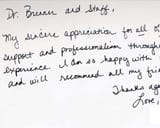 Dr. Brenner and Staff,
My sincere appreciation for all of
support and professionalism through
experience. I am so happy with
and will recommend all my frie
Thanks aga
Love,